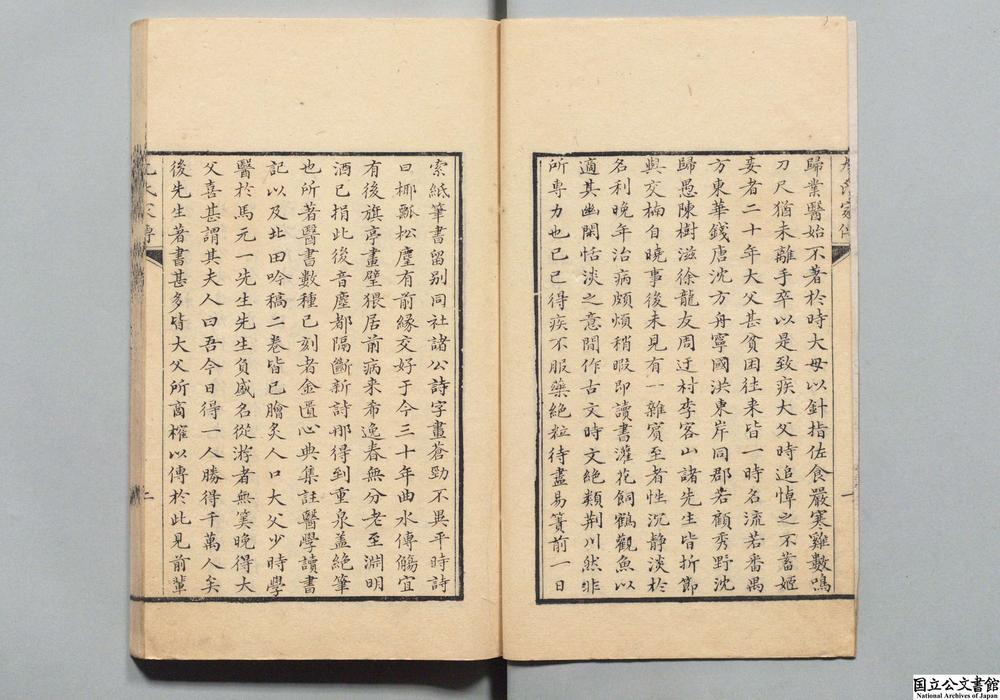 歸業醫始不著於時大母以針指佐食嚴寒雞數鳴
刀尺猶未離手卒以是致疾大父時追悼之不蓄姬
妾者二十年大父甚貧困往来皆一時名流若番禺
方東華錢唐沈方舟寧國洪東岸同郡若顧秀野沈
歸愚陳樹滋徐龍友周迂村李客山諸先生皆折節
與交楠自曉事後未見有一雜賓至者性沉静淡於
名利晚年治病頗煩稍暇即讀書灌花飼鶴觀魚以
適其幽閑恬淡之意間作古文時文絶類荆川然非
所専力也己巳得疾不服藥絶粒待盡易簀前一日
索紙筆書留别同社諸公詩字畫蒼勁不異平時詩
曰椰瓢松麈有前緣交好于今三十年曲水傳觴宜
有後旗亭畫壁猥居前病来希逸春無分老至淵明
酒已捐此後音塵都隔斷新詩那得到重泉盖絶筆
也所著醫書數種已刻者金匱心典集註醫學讀書
記以及北田吟稿二卷皆已膾炙人口大父少時學
醫於馬元一先生先生負盛名從游者無筭晚得大
父喜甚謂其夫人曰吾今日得一人勝得千萬人矣
後先生著書甚多皆大父所商榷以傳於此見前輩
国立公文書館
National Archives of Japan